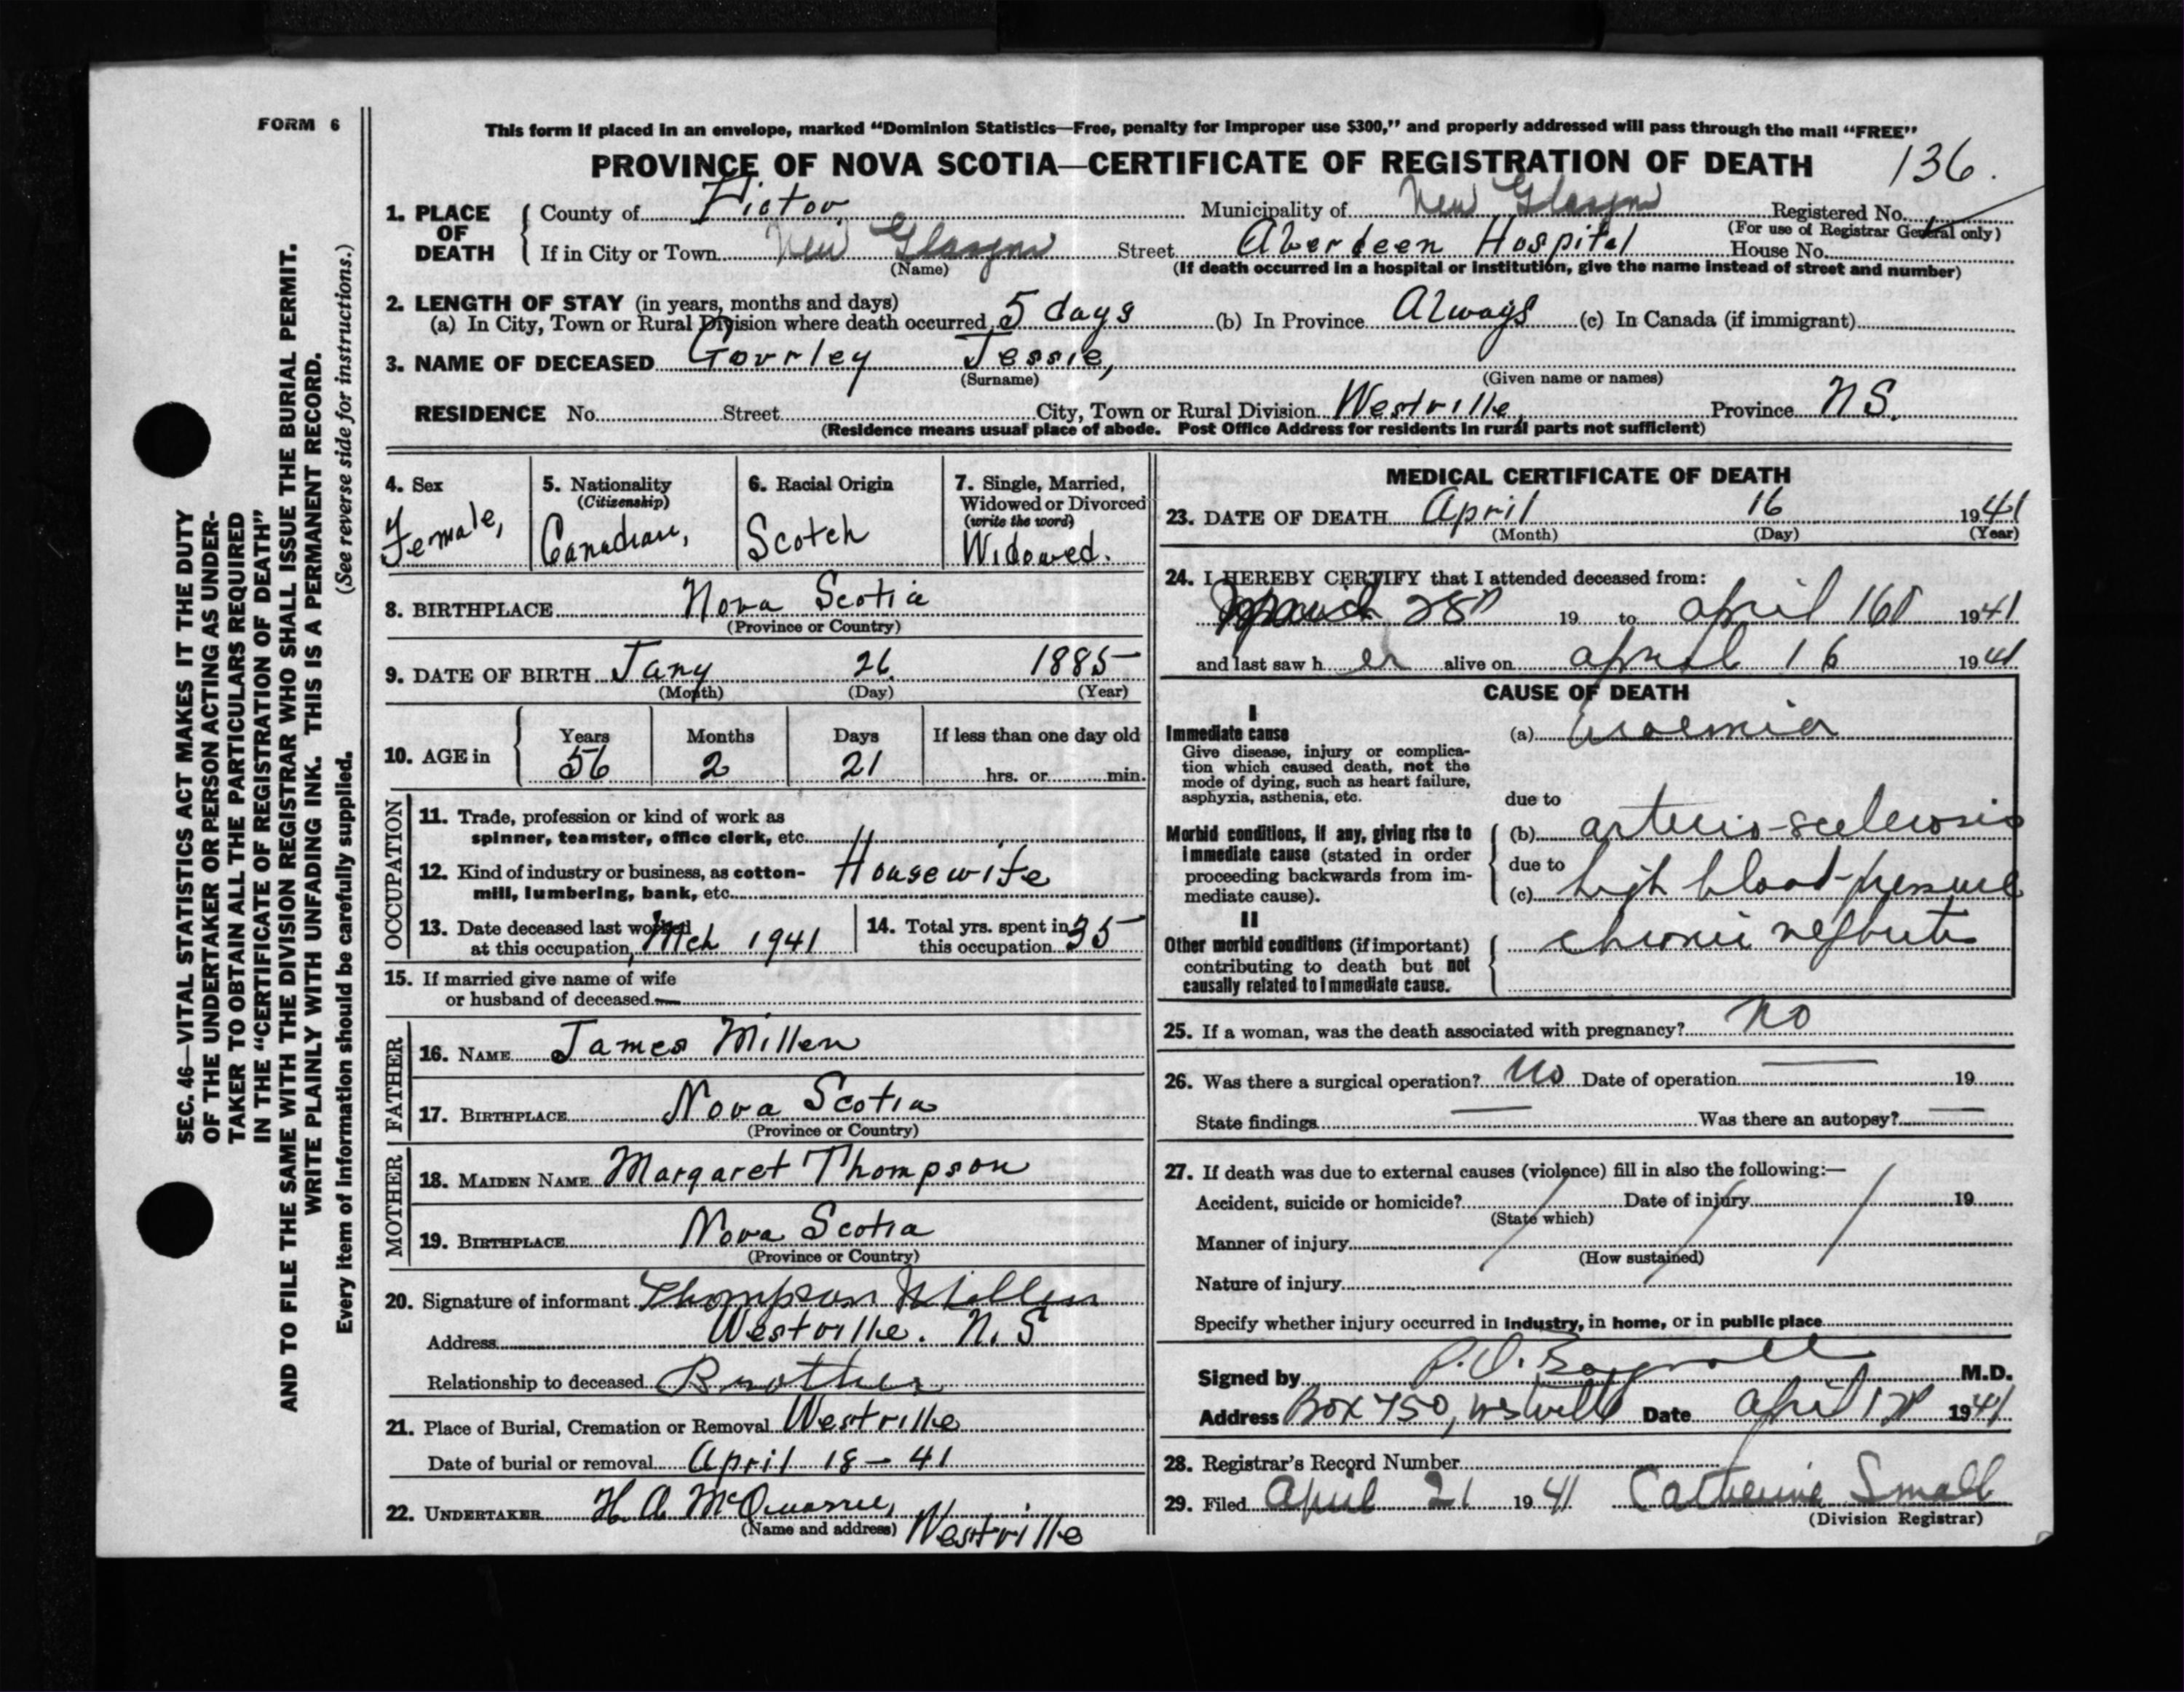 FORM 6
SEC. 46—VITAL STATISTICS ACT MAKES IT THE DUTY
OF THE UNDERTAKER OR PERSON ACTING AS UNDER-
TAKER TO OBTAIN ALL THE PARTICULARS REQUIRED
IN THE "CERTIFICATE OF REGISTRATION OF DEATH"
AND TO FILE THE SAME WITH THE DIVISION REGISTRAR WHO SHALL ISSUE THE BURIAL PERMIT.
WRITE PLAINLY WITH UNFADING INK. THIS IS A PERMANENT RECORD.
Every item of information should be carefully supplied. (See reverse side for instructions.)
This form if placed in an envelope, marked "Dominion Statistics—Free, penalty for improper use $300," and properly addressed will pass through the mail "FREE"
PROVINCE OF NOVA SCOTIA—CERTIFICATE OF REGISTRATION OF DEATH 136.
1. PLACE OF DEATH County of Pictou Municipality of New Glasgow Registered No.
(For use of Registrar General only)
If in City or Town New Glasgow Street Aberdeen Hospital House No.
(Name) (If death occurred in a hospital or institution, give the name instead of street and number)
2. LENGTH OF STAY (in years, months and days)
(a) In City, Town or Rural Division where death occurred 5 days (b) In Province Always (c) In Canada (if immigrant)
3. NAME OF DECEASED Gourley Jessie,
(Surname) (Given name or names)
RESIDENCE No. Street City, Town or Rural Division Westville, Province N.S.
(Residence means usual place of abode. Post Office Address for residents in rural parts not sufficient)
4. Sex Female,
5. Nationality (Citizenship) Canadian,
6. Racial Origin Scotch
7. Single, Married, Widowed or Divorced (write the word) Widowed.
8. BIRTHPLACE Nova Scotia
(Province or Country)
9. DATE OF BIRTH Jany 26 1885
(Month) (Day) (Year)
10. AGE in Years 56 Months 2 Days 21 If less than one day old hrs. or min.
OCCUPATION
11. Trade, profession or kind of work as
spinner, teamster, office clerk, etc.
12. Kind of industry or business, as cotton- Housewife
mill, lumbering, bank, etc.
13. Date deceased last worked
at this occupation Mch 1941
14. Total yrs. spent in
this occupation 35
15. If married give name of wife
or husband of deceased —
FATHER
16. NAME James Millen
17. BIRTHPLACE Nova Scotia
(Province or Country)
MOTHER
18. MAIDEN NAME Margaret Thompson
19. BIRTHPLACE Nova Scotia
(Province or Country)
20. Signature of informant Thompson Millen
Address Westville. N.S
Relationship to deceased Brother
21. Place of Burial, Cremation or Removal Westville
Date of burial or removal April 18 – 41
22. UNDERTAKER H. A. McQuarrie,
(Name and address) Westville
MEDICAL CERTIFICATE OF DEATH
23. DATE OF DEATH April 16 1941
(Month) (Day) (Year)
24. I HEREBY CERTIFY that I attended deceased from:
March 28 19 to April 16 1941
and last saw her alive on April 16 1941
CAUSE OF DEATH
I
Immediate cause (a) Uraemia
Give disease, injury or complica-
tion which caused death, not the
mode of dying, such as heart failure,
asphyxia, asthenia, etc.
due to
Morbid conditions, if any, giving rise to (b) arterio-sclerosis
immediate cause (stated in order due to
proceeding backwards from im- (c) high blood-pressure
mediate cause).
II
Other morbid conditions (if important) chronic nephritis
contributing to death but not
causally related to immediate cause.
25. If a woman, was the death associated with pregnancy? no
26. Was there a surgical operation? no Date of operation — 19
State findings — Was there an autopsy? —
27. If death was due to external causes (violence) fill in also the following:—
Accident, suicide or homicide? Date of injury 19
(State which)
Manner of injury
(How sustained)
Nature of injury
Specify whether injury occurred in industry, in home, or in public place
Signed by M.D.
Address Box 750, Westville Date April 17 1941
28. Registrar's Record Number
29. Filed April 21 1941 Catherine Small
(Division Registrar)